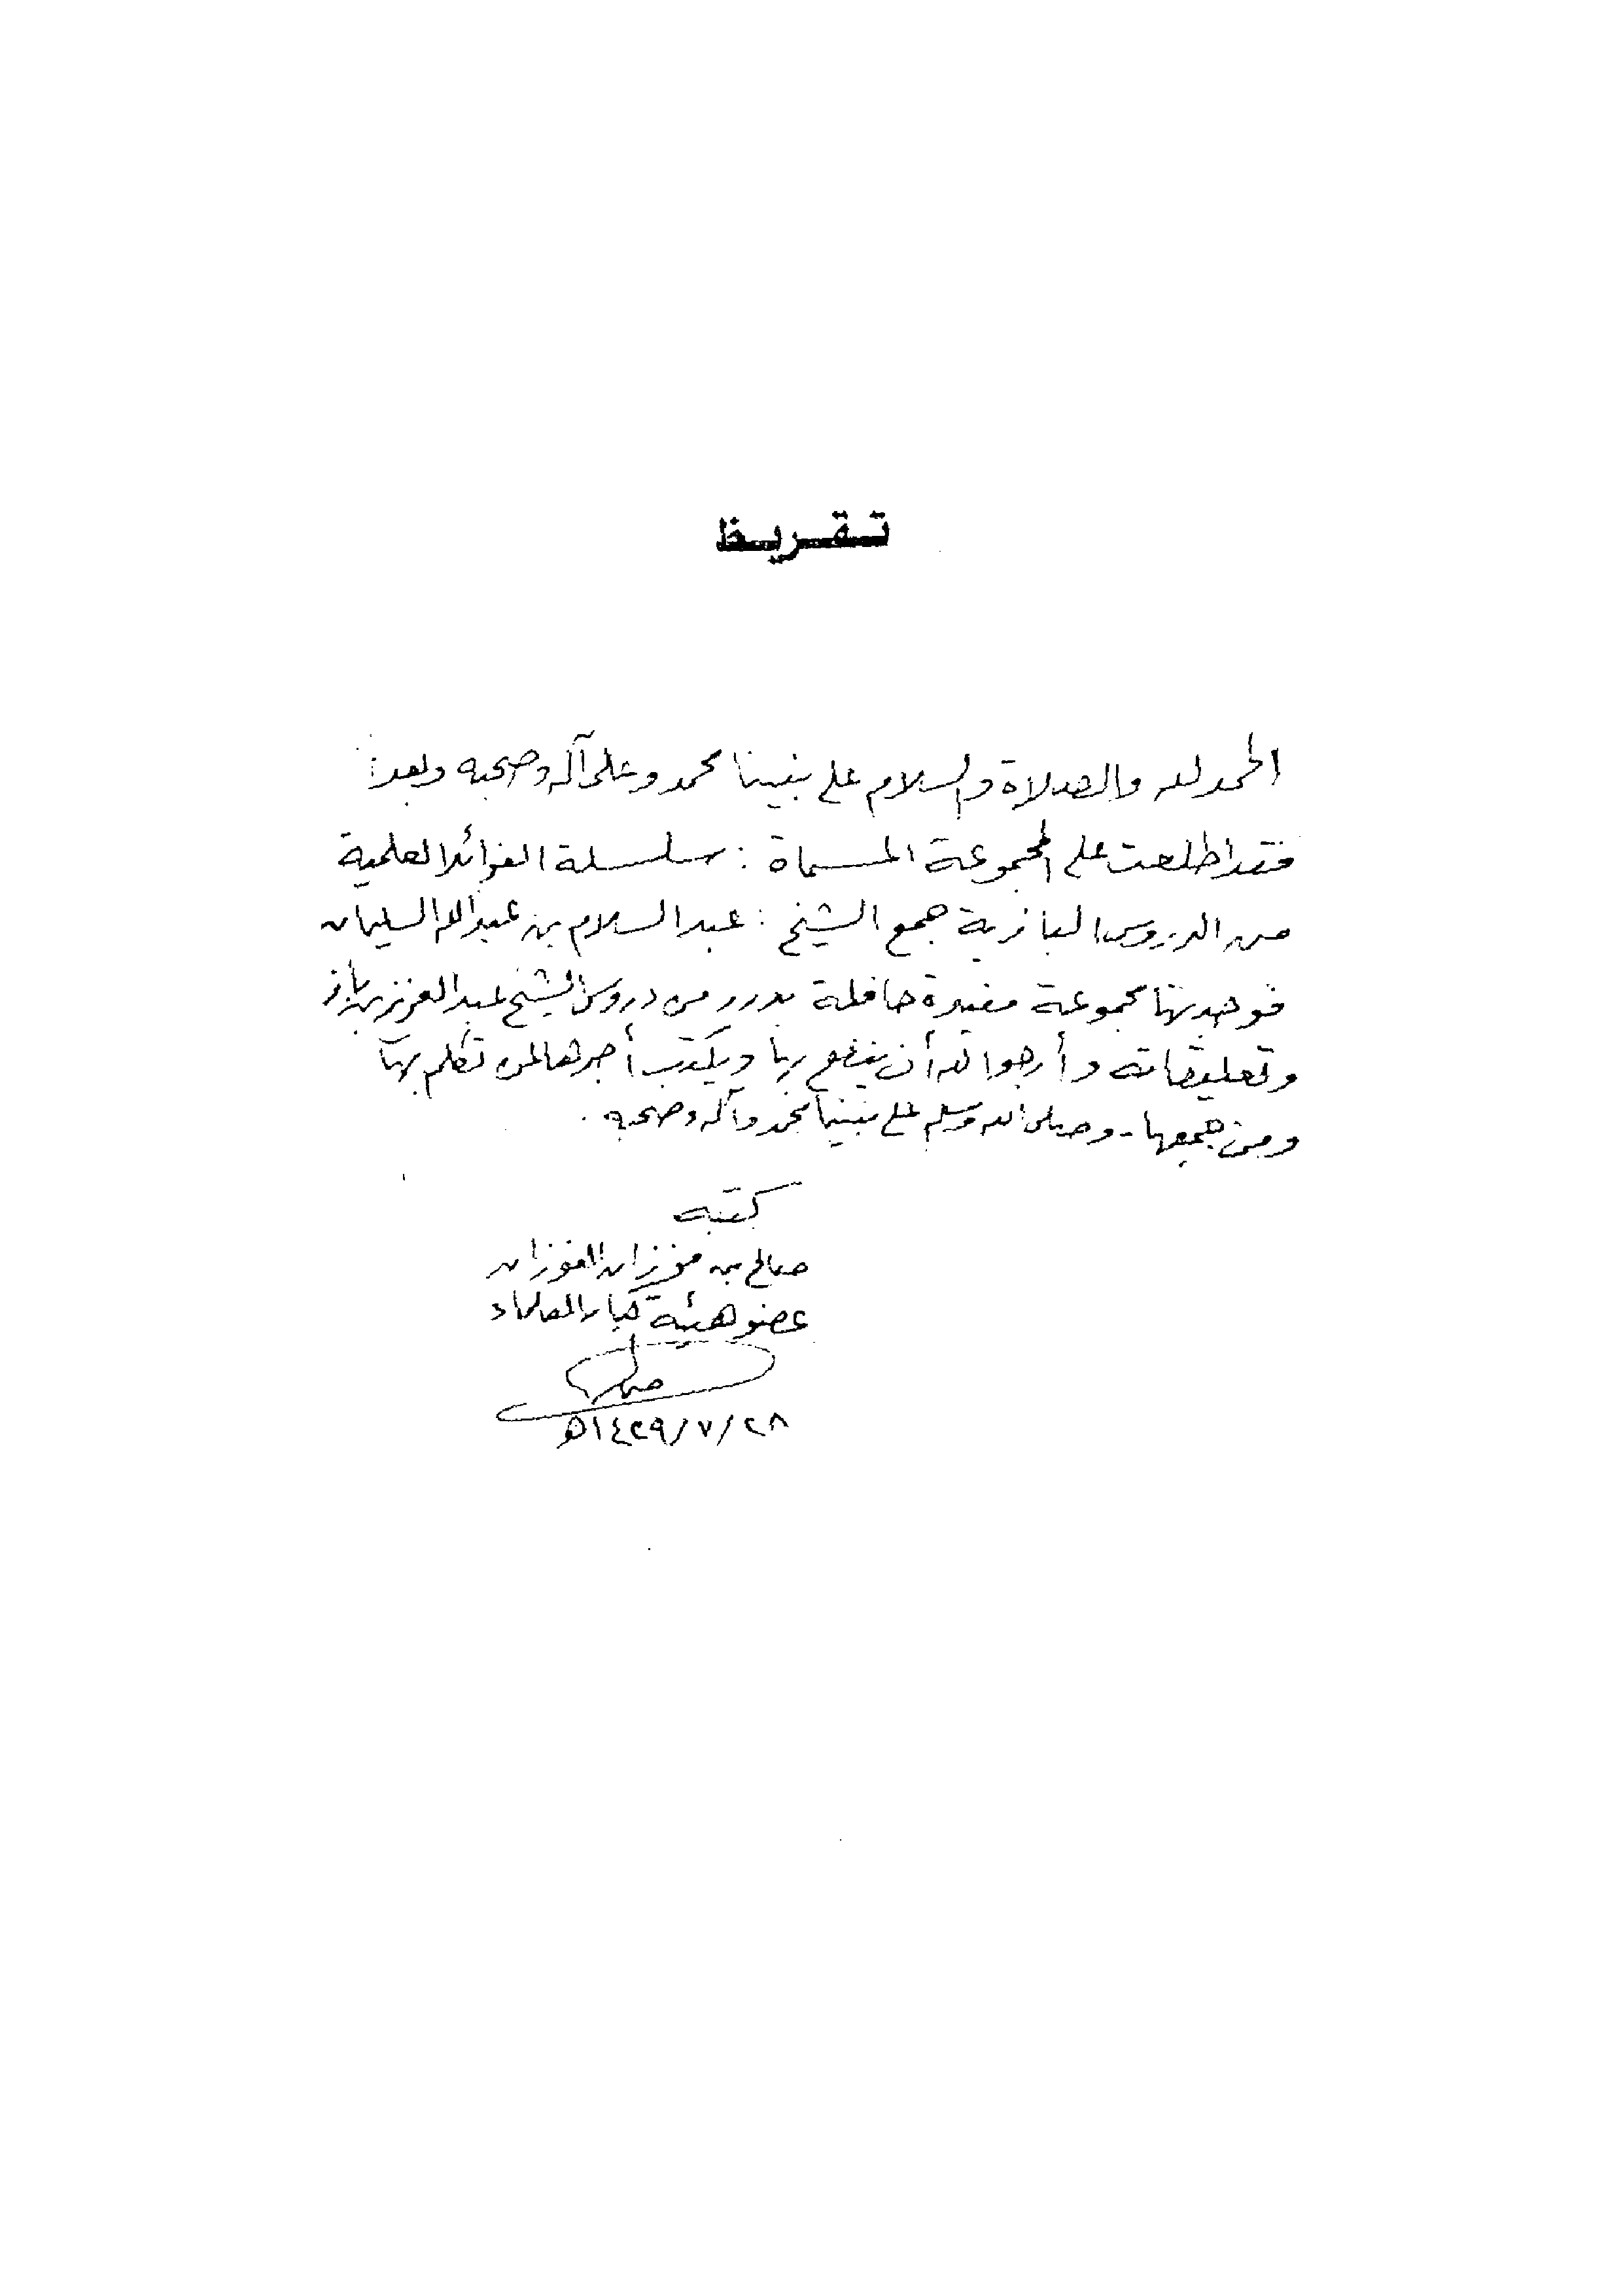 تقريظ
الحمد لله والصلاة والسلام على نبينا محمد وعلى آله وصحبه وبعد:
فقد اطلعت على المجموعة المسماة: سلسلة الفوائد العلمية
من الدروس البازية جمع الشيخ: عبد السلام بن عبد الله السليمان
فوجدتها مجموعة مفيدة حافلة بدرر من دروس الشيخ عبد العزيز بن باز
وتعليقاته وأرجو الله أن ينفع بها ويكتب أجرها لمن تكلم بها
ومن جمعها - وصلى الله وسلم على نبينا محمد وآله وصحبه.
كتبه
صالح بن فوزان الفوزان
عضو هيئة كبار العلماء
صالح
٢٨/٧/١٤٢٩ه